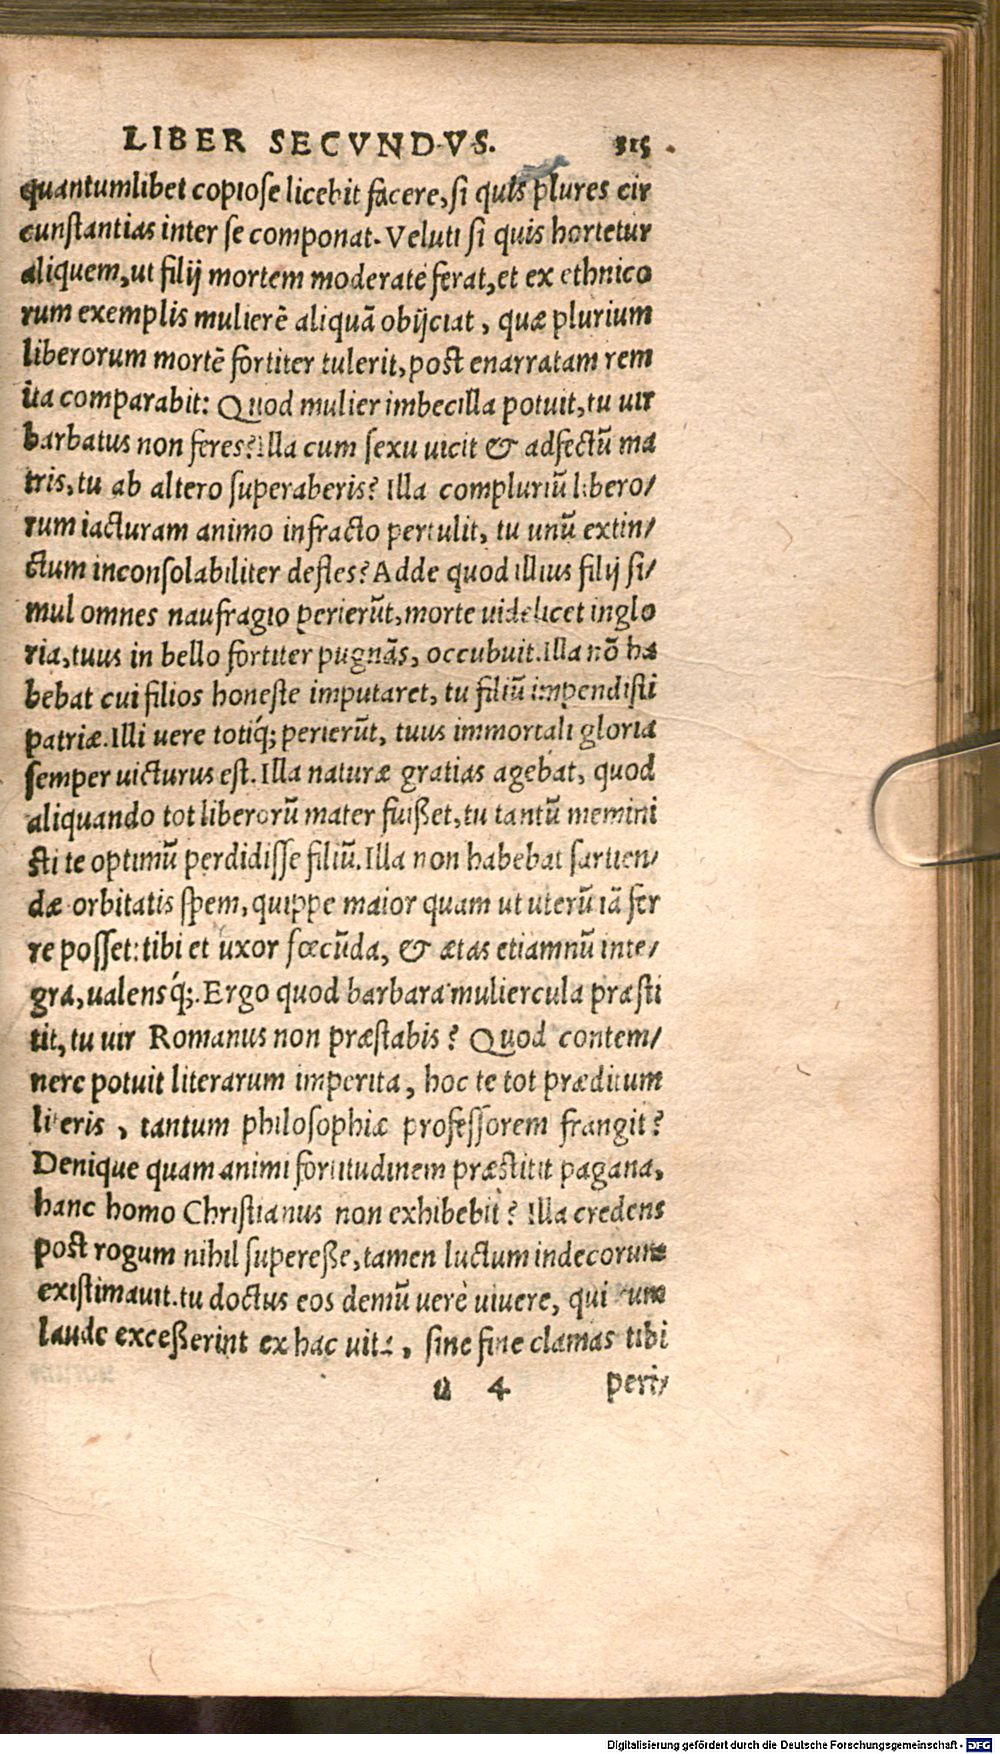 LIBER SECVNDVS. 315
quantumlibet copiose licebit facere, si quis plures cir
cunstantias inter se componat. Veluti si quis hortetur
aliquem, ut filij mortem moderate ferat, et ex ethnico
rum exemplis mulierē aliquā obijciat, quæ plurium
liberorum mortē fortiter tulerit, post enarratam rem
ita comparabit: Quod mulier imbecilla potuit, tu uir
barbatus non feres? Illa cum sexu uicit & adfectū ma
tris, tu ab altero superaberis? Illa compluriū libero/
rum iacturam animo infracto pertulit, tu unū extin/
ctum inconsolabiliter defles? Adde quod illius filij si/
mul omnes naufragio perierūt, morte uidelicet inglo
ria, tuus in bello fortiter pugnās, occubuit. Illa nō ha
bebat cui filios honeste imputaret, tu filiū impendisti
patriæ. Illi uere totiq́; perierūt, tuus immortali gloria
semper uicturus est. Illa naturæ gratias agebat, quod
aliquando tot liberorū mater fuißet, tu tantū memini
sti te optimū perdidisse filiū. Illa non habebat sartien/
dæ orbitatis spem, quippe maior quam ut uterū iā fer
re posset: tibi et uxor fœcūda, & ætas etiamnū inte/
gra, ualensq́;. Ergo quod barbara muliercula præsti
tit, tu uir Romanus non præstabis? Quod contem/
nere potuit literarum imperita, hoc te tot præditum
literis, tantum philosophiæ professorem frangit?
Denique quam animi fortitudinem præstitit pagana,
hanc homo Christianus non exhibebit? Illa credens
post rogum nihil supereße, tamen luctum indecorum
existimauit. tu doctus eos demū uerè uiuere, qui cum
laude exceßerint ex hac uita, sine fine clamas tibi
u 4 peri/
Digitalisierung gefördert durch die Deutsche Forschungsgemeinschaft - DFG